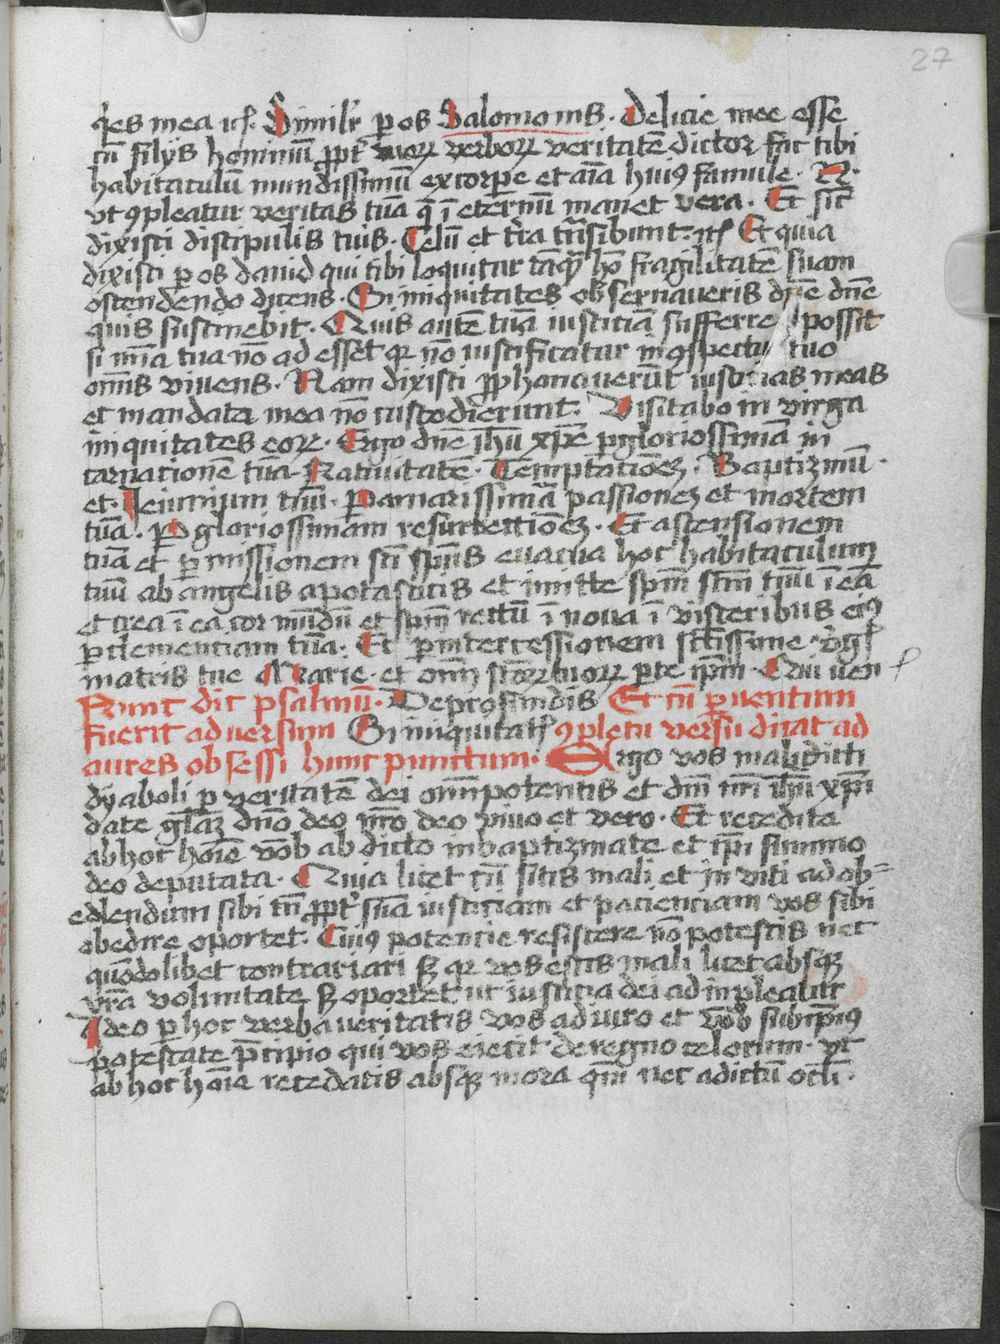 27
q̄es mea ıcꝭ Similr̄ ꝑ os Salomonis . Delicie mee esse
cū filijs hominū ꝓpt̄ tuoꝝ verboꝝ veritatē dictoꝝ fac tibi
habitaculū mundissimū ex corꝑe et aīa huiꝰ famule . N .
vt ꝯpleatur veritas tua q̄ ī eternū manet vera . Et sic̄
dixisti discipulis tuis . Celū et tr̄a trāsibunt : ıcꝭ Et quia
dixisti ꝑ os dauid qui tibi loquitur tāqͣ hō fragilitatē suam
ostendendo dicens . Si iniquitates obseruaueris dn̄e dn̄e
quis sustinebit . Quis autē tuā iusticiā sufferre possit
si mīa tua nō ad esset qꝛ nō iustificatur in ꝯspectu tuo
om̄is viuens . Nam dixisti ꝓphanauerūt iusticias meas
et mandata mea nō custodierunt . Visitabo in virga
iniquitates eoꝝ . Ergo dn̄e ih̄u xp̄e ꝑ gloriosissimā in
carnacionē tuā . Natiuitatē . Temptacionē . Baptizmū .
et . Jeiunium tuū . Ꝑ amarissimā passionē et mortem
tuā . Ꝑ gloriosissimam resurrectionē . Et ascensionem
tuā et ꝑ missionem sc̄i sp̄us euacua hoc habitaculum
tuū ab angelis apotasticis et mitte sp̄m sc̄m tuū ī eā
et crea ī ea cor mūdū et sp̄m rectū īnoua ī visceribus eiꝰ
ꝑ clementiam tuā . Et ꝑ intercessionem sc̄tissime v̄gīs
matris tue Marie . et om̄i sc̄toꝝ tuoꝝ ꝑ te ip̄m . Qui ven
Nunc dic psalmū . De profundis Et cū ꝑuentum
fuerit ad versum Si iniquitatꝭ ꝯpletu versu dicat ad
aures obsessi hunc punctum . Ergo vos maledicti
dyaboli ꝑ veritatē dei omīpotentis et dn̄i nr̄i ih̄u xp̄i
date glāꝫ dn̄o deo nr̄o deo viuo et vero . Et recedite
ab hoc hoīe vob̄ ab dicto in baptizmate et ip̄i summo
deo deputata . Quia licet cū sitis mali et in viti ad ob=
ediendum sibi tn̄ ꝓpt̄ suā iusticiam et pacienciam vos sibi
obedire oportet . Cuiꝰ potencie resistere nō potestis nec
quōdolibet contrariari sꝫ qꝛ vos estis mali licet absqꝫ
vr̄a voluntate sꝫ oportet ut iusticia dei ad impleatur
Ideo ꝑ hoc verba veritatis vos adiuro et vob̄ sub ip̄iꝰ
potestate p̄cipio qui vos eiecit de regno celorum . vt
ab hoc hoīe recedatis absqꝫ mora qm̄ nec ad ictū ocl̄i .